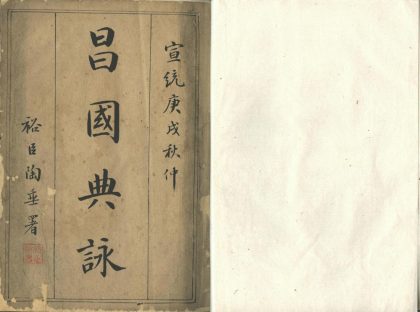 宣統庚戌秋仲
昌國典詠
裕臣陶垂署